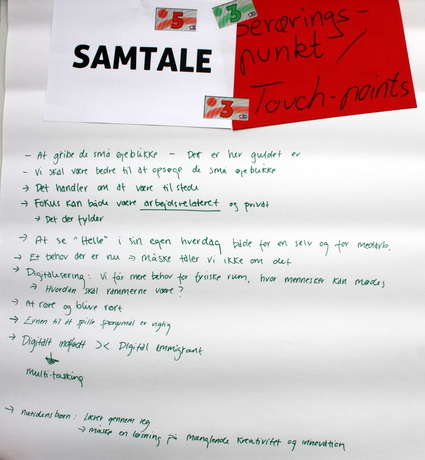 5
3
SAMTALE
Berørings-
punkt /
3
Touch-points
- At gribe de små øjeblikke - Det er her guldet er
- Vi skal være bedre til at opsøge de små øjeblikke
→ Det handler om at være til stede
→ Fokus kan både være arbejdsrelateret og privat
→ Det der fylder
→ At se "Helle" i sin egen hverdag både for en selv og for medarb.
→ Et behov der er nu → måske taler vi ikke om det
→ Digitalisering: Vi får mere behov for fysiske rum, hvor mennesker kan mødes
→ Hvordan skal rammerne være?
→ At røre og blive rørt
→ Evnen til at stille spørgsmål er vigtig
→ Digitalt indfødt >< Digital immigrant
multi-tasking
→ nutidensbørn: Lærer gennem leg
→ måske en løsning på manglende kreativitet og innovation